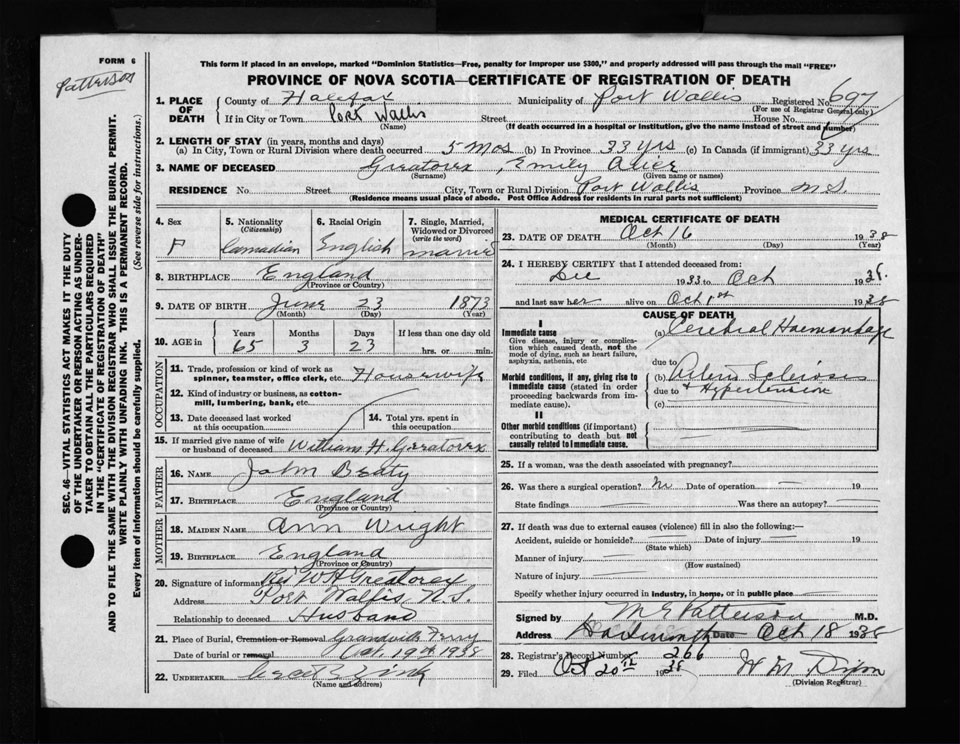 FORM 6
Patterson
This form if placed in an envelope, marked "Dominion Statistics—Free, penalty for improper use $300," and properly addressed will pass through the mail "FREE"
PROVINCE OF NOVA SCOTIA—CERTIFICATE OF REGISTRATION OF DEATH
1. PLACE OF DEATH County of Halifax Municipality of Port Wallis Registered No. 697
(For use of Registrar General only)
If in City or Town Port Wallis Street House No.
(Name) (If death occurred in a hospital or institution, give the name instead of street and number)
2. LENGTH OF STAY (in years, months and days)
(a) In City, Town or Rural Division where death occurred 5 Mos (b) In Province 33 yrs (c) In Canada (if immigrant) 33 yrs
3. NAME OF DECEASED Greatorex, Emily Alice
(Surname) (Given name or names)
RESIDENCE No. Street City, Town or Rural Division Port Wallis Province N.S.
(Residence means usual place of abode. Post Office Address for residents in rural parts not sufficient)
4. Sex F
5. Nationality (Citizenship) Canadian
6. Racial Origin English
7. Single, Married, Widowed or Divorced (write the word) married
8. BIRTHPLACE England
(Province or Country)
9. DATE OF BIRTH June 23 1873
(Month) (Day) (Year)
10. AGE in Years 65 Months 3 Days 23 If less than one day old hrs. or min.
OCCUPATION
11. Trade, profession or kind of work as spinner, teamster, office clerk, etc. Housewife
12. Kind of industry or business, as cotton-mill, lumbering, bank, etc.
13. Date deceased last worked at this occupation
14. Total yrs. spent in this occupation
15. If married give name of wife or husband of deceased William H. Greatorex
FATHER
16. NAME John Beaty
17. BIRTHPLACE England
(Province or Country)
MOTHER
18. MAIDEN NAME Ann Wright
19. BIRTHPLACE England
(Province or Country)
20. Signature of informant Rev W H Greatorex
Address Port Wallis, N.S.
Relationship to deceased Husband
21. Place of Burial, Cremation or Removal Granville Ferry
Date of burial or removal Oct. 19th 1938
22. UNDERTAKER
(Name and address)
MEDICAL CERTIFICATE OF DEATH
23. DATE OF DEATH Oct 16 1938
(Month) (Day) (Year)
24. I HEREBY CERTIFY that I attended deceased from:
Dec 1933 to Oct 1938.
and last saw her alive on Oct 1st 1938
CAUSE OF DEATH
I
Immediate cause
Give disease, injury or complication which caused death, not the mode of dying, such as heart failure, asphyxia, asthenia, etc
(a) Cerebral Haemorrhage
due to
Morbid conditions, if any, giving rise to immediate cause (stated in order proceeding backwards from immediate cause).
(b) Arterio Sclerosis
due to + Hypertension
(c)
II
Other morbid conditions (if important) contributing to death but not causally related to immediate cause.
25. If a woman, was the death associated with pregnancy?
26. Was there a surgical operation? no Date of operation 19
State findings Was there an autopsy?
27. If death was due to external causes (violence) fill in also the following:—
Accident, suicide or homicide? Date of injury 19
(State which)
Manner of injury
(How sustained)
Nature of injury
Specify whether injury occurred in industry, in home, or in public place
Signed by M G Patterson M.D.
Address Dartmouth Date Oct 18 1938
28. Registrar's Record Number 266
29. Filed Oct 20th 1938
(Division Registrar)
SEC. 46—VITAL STATISTICS ACT MAKES IT THE DUTY
OF THE UNDERTAKER OR PERSON ACTING AS UNDER-
TAKER TO OBTAIN ALL THE PARTICULARS REQUIRED
IN THE "CERTIFICATE OF REGISTRATION OF DEATH"
AND TO FILE THE SAME WITH THE DIVISION REGISTRAR WHO SHALL ISSUE THE BURIAL PERMIT.
WRITE PLAINLY WITH UNFADING INK. THIS IS A PERMANENT RECORD.
Every item of information should be carefully supplied. (See reverse side for instructions.)